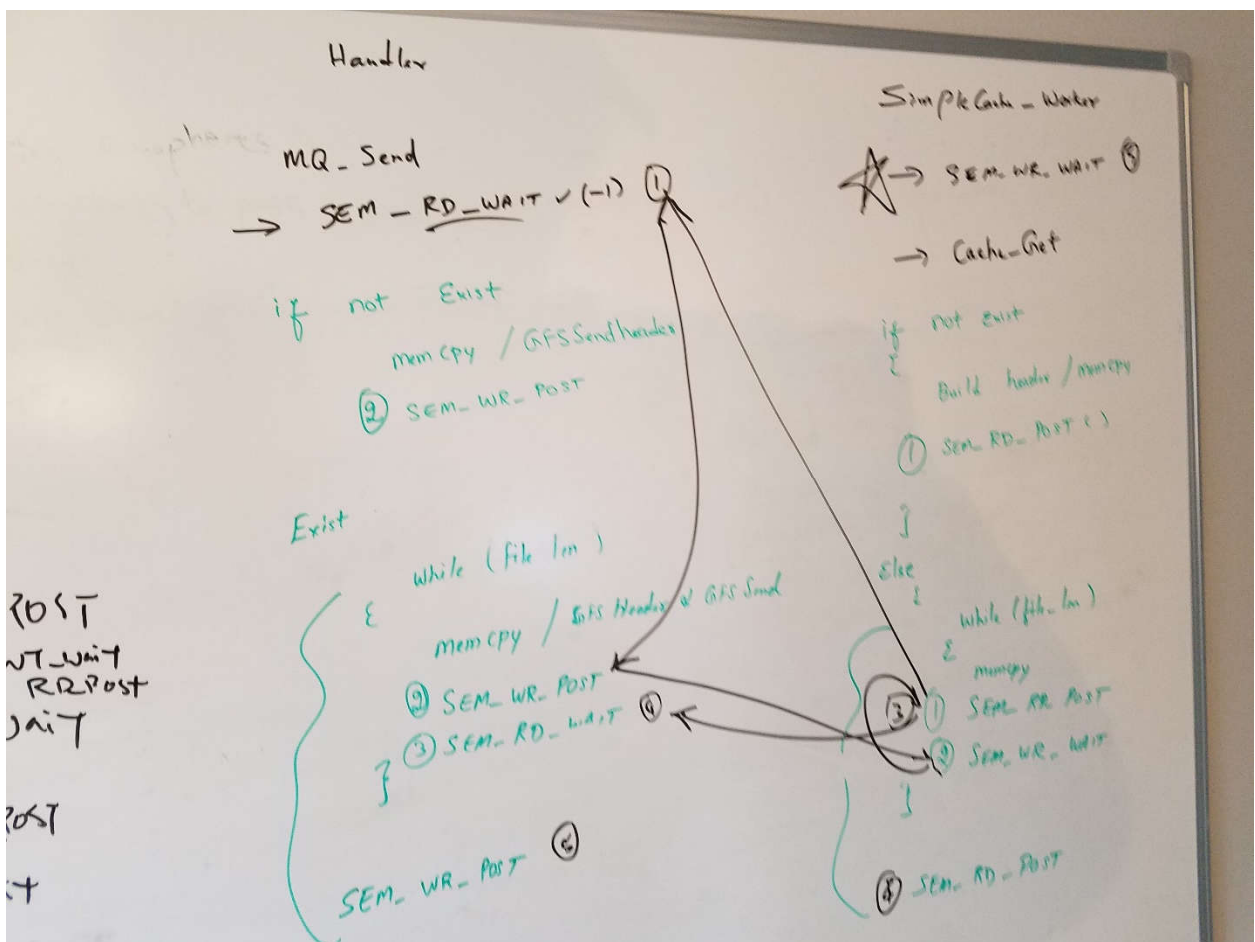 Handler
MQ_Send
→ SEM_RD_WAIT ✓ (-1) ①
if not Exist
memcpy / GFSSendheader
② SEM_WR_POST
Exist
while (file len)
{
memcpy / GFS Header & GFS Send
② SEM_WR_POST
③ SEM_RD_WAIT ④
}
SEM_WR_POST
SimpleCache_Worker
→ SEM_WR_WAIT ⑤
→ Cache_Get
if not exist
{
Build header / memcpy
① SEM_RD_POST ()
}
Else
{
while (file_len)
{
memcpy
③ ① SEM_RR POST
② SEM_WR_WAIT
}
SEM_RD_POST
OST
NT_WAIT
RRPOST
WAIT
OST